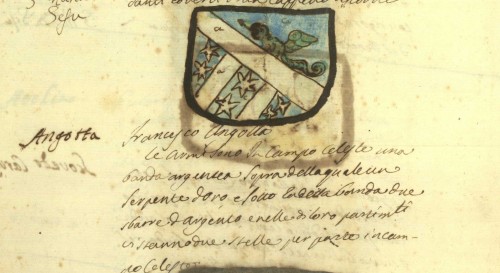 Segu
Angotta
Francesco Angotta
Le Armi sono In Campo Celeste una
banda argentea sopra della quale un
serpente d'oro e sotto la detta banda due
sbarre d'argento e nelle di loro parimti
ci stanno due stelle per parte in cam-
po Celeste